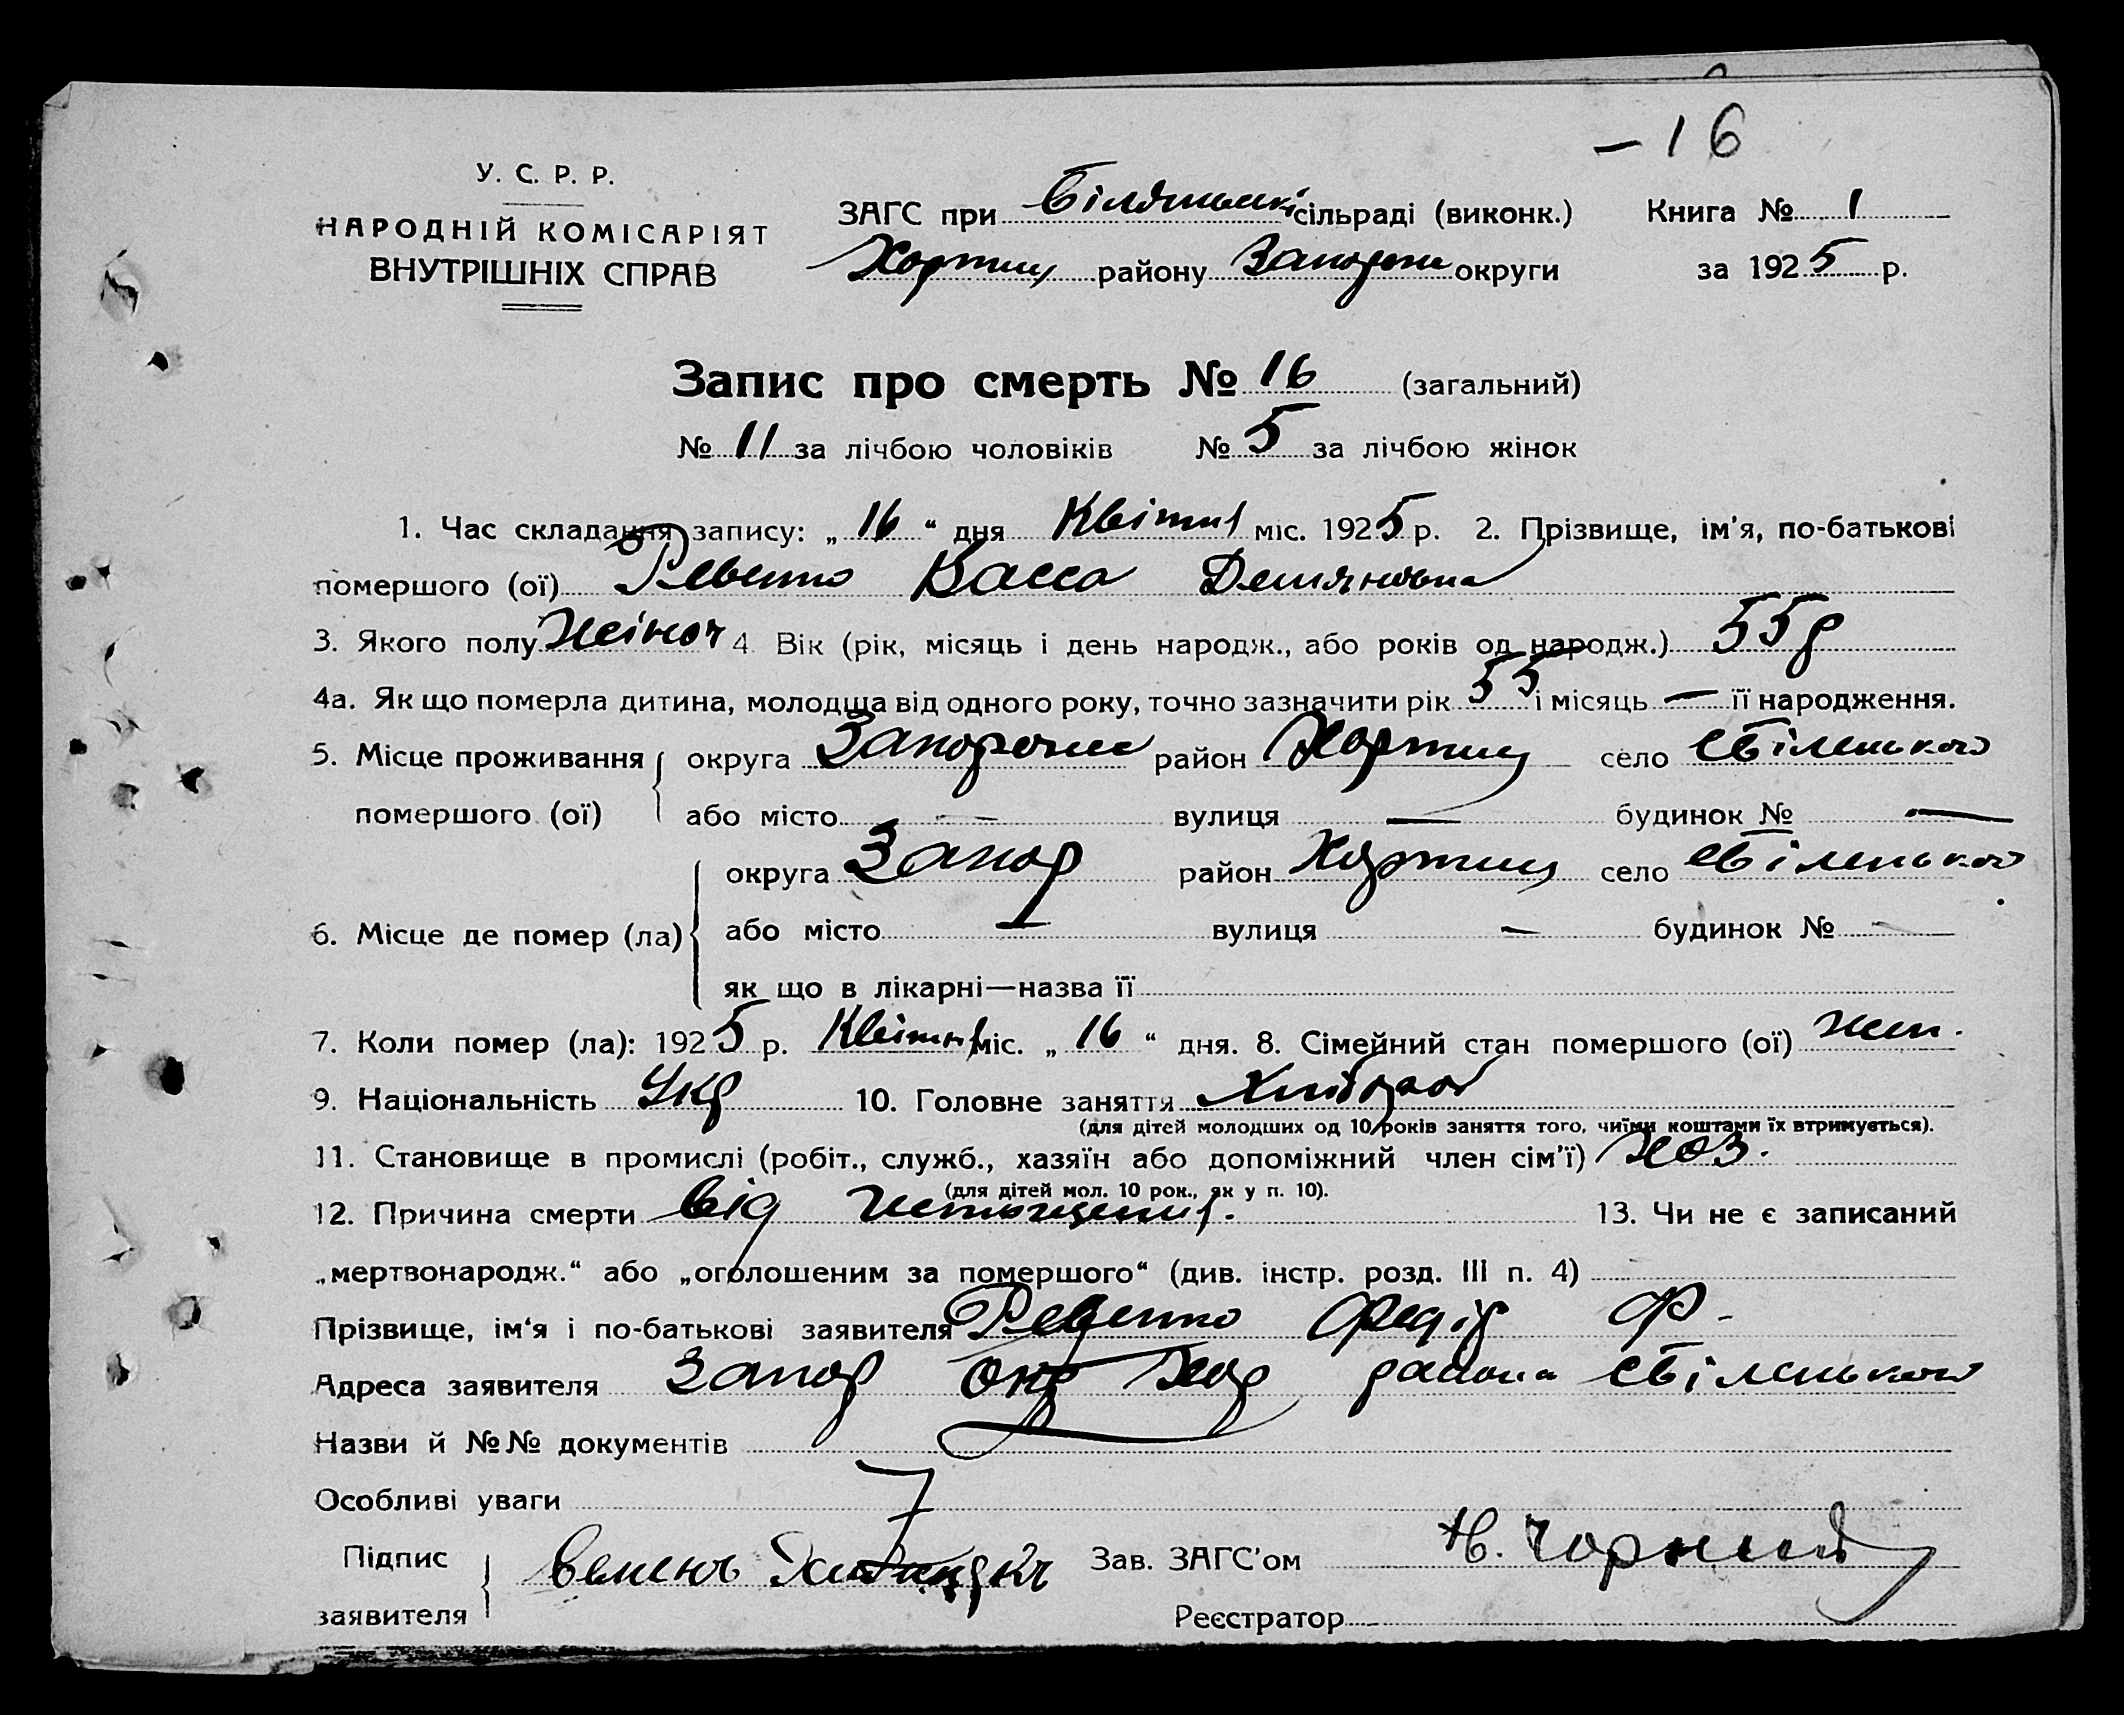 – 16
У. С. Р. Р.
НАРОДНІЙ КОМІСАРІЯТ
ВНУТРІШНІХ СПРАВ
ЗАГС при сільраді (виконк.) Книга № 1
Хортиц району Запорож округи за 1925 р.
Запис про смерть № 16 (загальний)
№ 11 за лічбою чоловіків № 5 за лічбою жінок
1. Час складання запису: „16“ дня Квітня міс. 1925 р. 2. Прізвище, ім'я, по-батькові
помершого (ої) Ревенко Васса Демяновна
3. Якого полу Жіноч 4. Вік (рік, місяць і день народж., або років од народж.) 55 р
4а. Як що померла дитина, молодща від одного року, точно зазначити рік 55 і місяць — її народження.
5. Місце проживання округа район Хортиц село
помершого (ої) або місто — вулиця — будинок № —
округа Запор район Хортиц село
6. Місце де помер (ла) або місто — вулиця — будинок № —
як що в лікарні—назва її
7. Коли помер (ла): 1925 р. Квітня міс. „16“ дня. 8. Сімейний стан помершого (ої)
9. Національність Укр 10. Головне заняття Хлібороб
(для дітей молодших од 10 років заняття того, чиїми коштами їх втримується).
11. Становище в промислі (робіт., служб., хазяїн або допоміжний член сім'ї) хоз.
(для дітей мол. 10 рок., як у п. 10).
12. Причина смерти від истощения. 13. Чи не є записаний
„мертвонародж.“ або „оголошеним за помершого“ (див. інстр. розд. III п. 4)
Прізвище, ім'я і по-батькові заявителя Ревенко Федір Ф.
Адреса заявителя Запор Окр Хор района
Назви й №№ документів
Особливі уваги
Підпис
заявителя
Зав. ЗАГС'ом Н. Чорний
Реєстратор